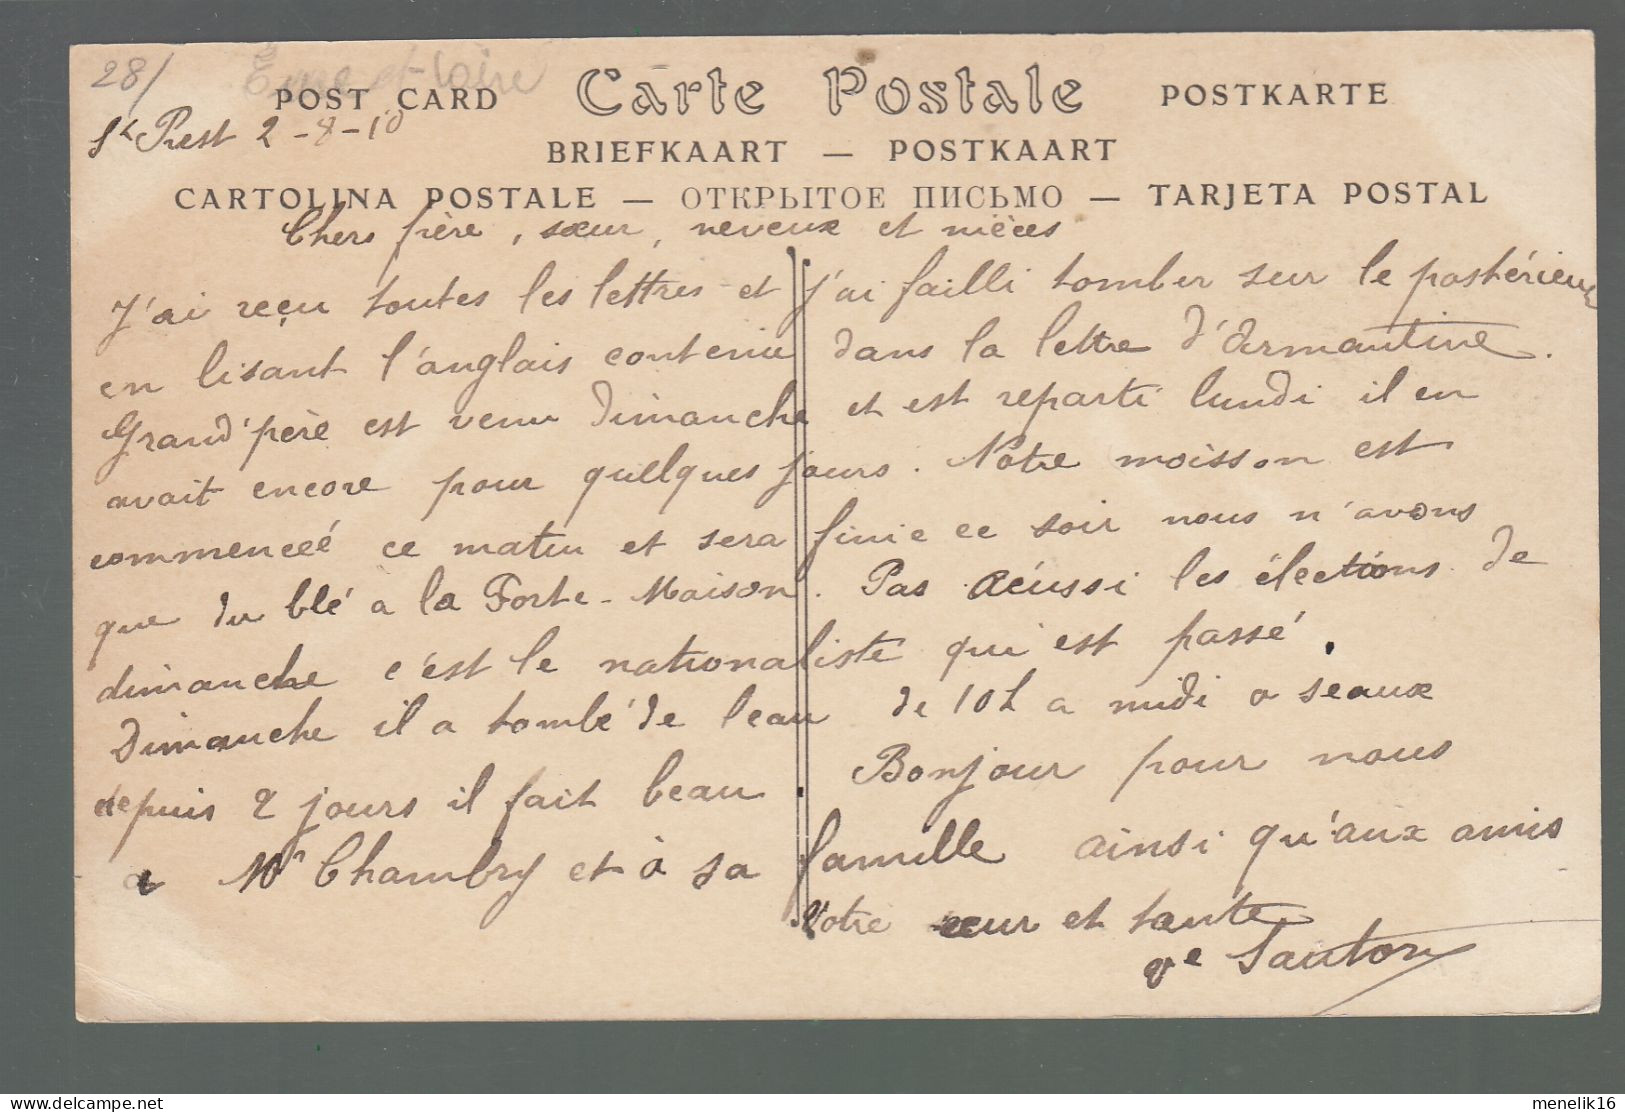 28/ Eure-et-Loire
POST CARD Carte Postale POSTKARTE
St Prest 2-8-10
BRIEFKAART — POSTKAART
CARTOLINA POSTALE — ОТКРЫТОЕ ПИСЬМО — TARJETA POSTAL
Chers frère, sœur, neveux et nièces
J'ai reçu toutes les lettres et j'ai failli tomber sur le postérieur
en lisant l'anglais contenu dans la lettre d'Armantine.
Grand'père est venu Dimanche et est reparti lundi il en
avait encore pour quelques jours. Notre moisson est
commenceé ce matin et sera finie ce soir nous n'avons
que du blé à la Forte-Maison. Pas réussi les élections de
dimanche c'est le nationaliste qui est passé.
Dimanche il a tombé de leau de 10h a midi a seaux
depuis 2 jours il fait beau. Bonjour pour nous
a Mr Chambry et à sa famille ainsi qu'aux amis
Votre sœur et tante
Ve Santon
menelik16